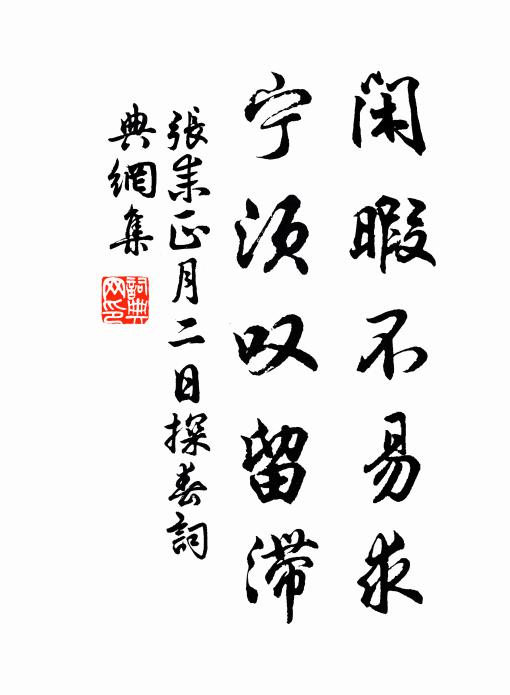 闲暇不易求
宁须叹留滞
張耒正月二日探春詞
典網集
詞典網印